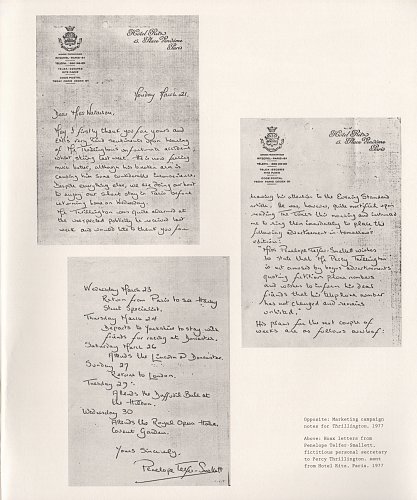 Hotel Ritz
15, Place Vendôme
Paris
Monday March 21.
Dear Miss Nelson,
May I firstly thank you for yours and
EMI's very kind sentiments upon hearing
of Mr Thrillington's unfortunate accident
whilst skiing last week. He is now feeling
much better, although his broken arm is
causing him some considerable inconvenience.
Despite everything else, we are doing our best
to enjoy our short stay in Paris before
returning home on Wednesday.
Mr Thrillington was quite alarmed at
the unexpected publicity he received last
week and would like to thank you for
Hotel Ritz
15, Place Vendôme
Paris
drawing his attention to the Evening Standard
article. He was however, quite mortified upon
reading The Times this morning and instructed
me to ring them immediately to place the
following advertisement in tomorrow's
edition:
"Miss Penelope Telfer-Smallett wishes
to state that Mr Percy Thrillington
is not amused by bogus advertisements
quoting fictitious phone numbers
and wishes to inform his dear
friends that his telephone number
has not changed and remains
unlisted."
His plans for the next couple of
weeks are as follows overleaf:
Wednesday March 23
Return from Paris to see Harley
Street Specialist.
Thursday March 24
Departs to Yorkshire to stay with
friends for racing at Doncaster.
Saturday March 26
Attends the Lincoln at Doncaster.
Sunday 27
Returns to London.
Tuesday 29
Attends the Daffodil Ball at
the Hilton.
Wednesday 30
Attends the Royal Opera House,
Covent Garden.
Yours Sincerely,
Penelope Telfer-Smallett
Opposite: Marketing campaign
notes for Thrillington, 1977
Above: Hoax letters from
Penelope Telfer-Smallett,
fictitious personal secretary
to Percy Thrillington, sent
from Hotel Ritz, Paris, 1977